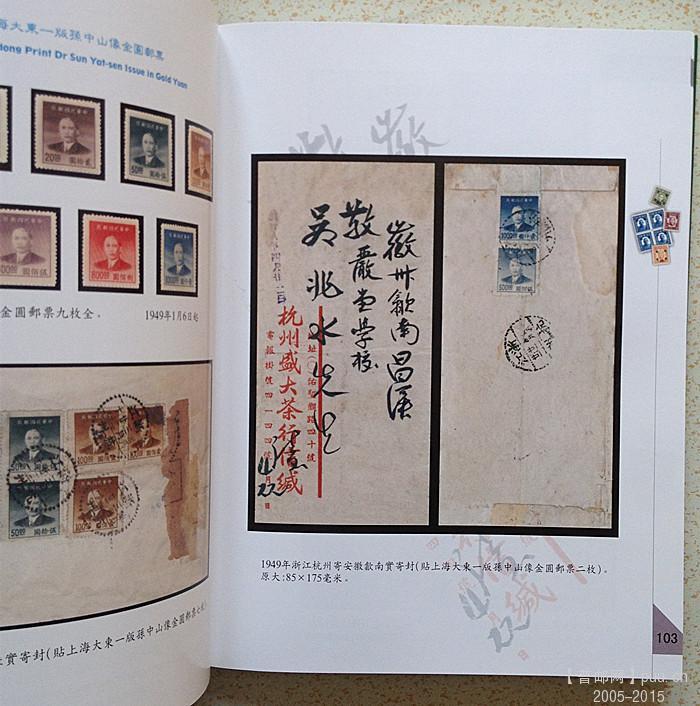 海大東一版孫中山像金圓郵票
Hong Print Dr Sun Yat-sen Issue in Gold Yuan
金圓郵票九枚全。 1949年1月6日起
實寄封(貼上海大東一版孫中山像金圓郵票七
徽州歙南昌溪
敬嚴堂學校
吴兆水先生
杭州盛大茶行信緘
址:佑聖觀路四十號
電報掛號四一四四號
月
日
1949年浙江杭州寄安徽歙南實寄封(貼上海大東一版孫中山像金圓郵票二枚)。
原大:85×175毫米。
103
【普邮网】puu.cn
2005-2015